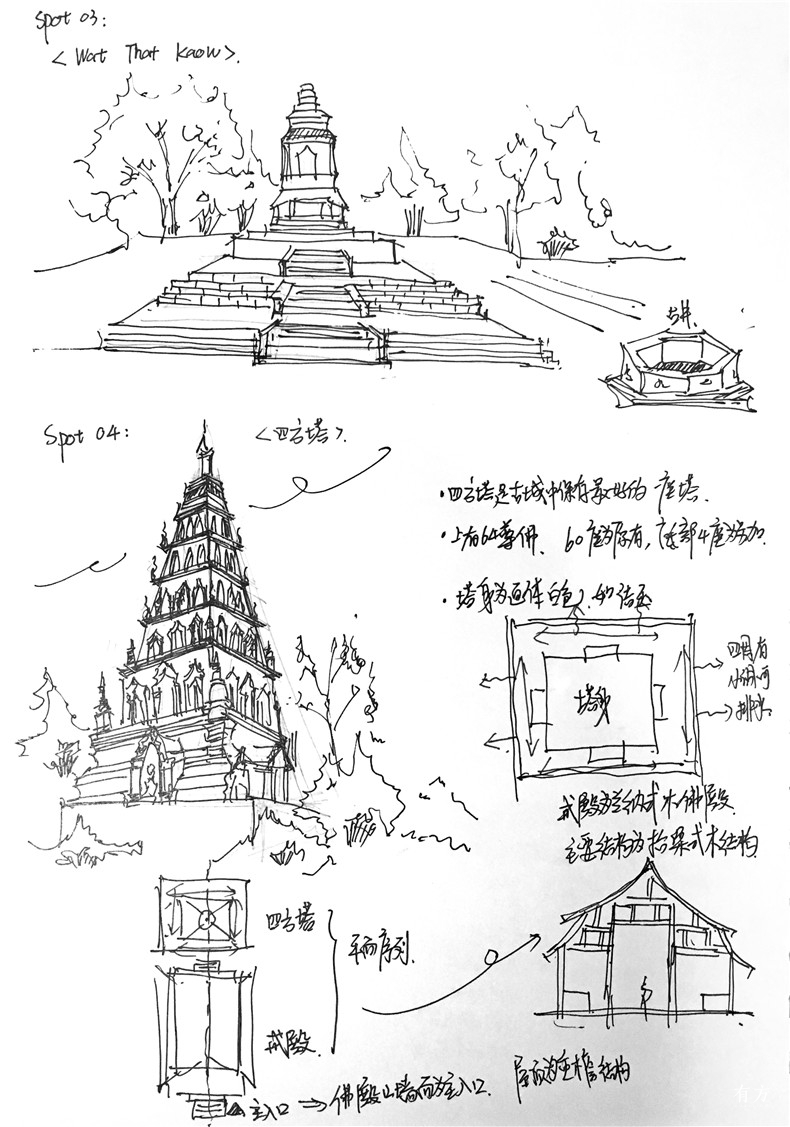 Spot 03:
<Wat That Kaow>.
古井.
Spot 04:
<四方塔>.
·四方塔是古城中保存最好的一座塔.
·上有64尊佛、60座为原有,底部4座为加.
·塔身为通体白色,
四周有
小洞可
排水.
塔身
戒殿为兰纳式木佛殿.
主要结构为抬梁式木结构
四方塔
平面序列.
戒殿.
主入口 → 佛殿山墙面为主入口.
屋面为重檐结构
有方